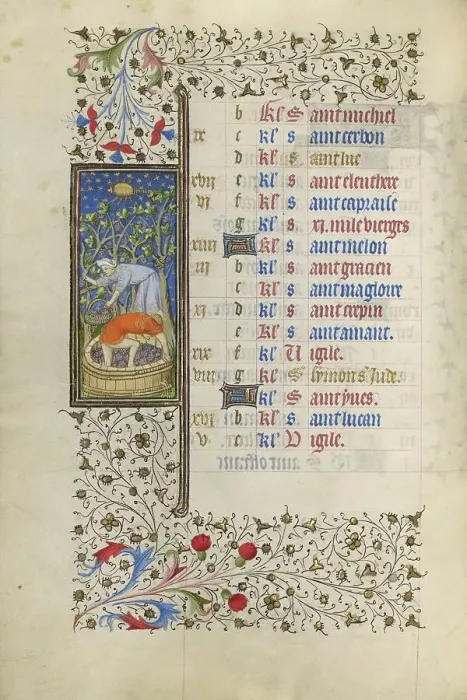 b kl' S aint michiel
ix c kl' s aint cerbon
d kl' S aint luc
xvii e kl' s aint eleuthere
vi f kl' s aint capraise
g kl' s. xi. mile vierges
xiiii A kl' s aint melon
iii b kl' s aint gracien
c kl' s aint magloire
xi d kl' s aint crepin
e kl' s aint amant.
xix f kl' V igile.
viii g kl' S symon s. jude.
A kl' S aint yves.
xvi b kl' S aint lucan
v c kl' V igile.